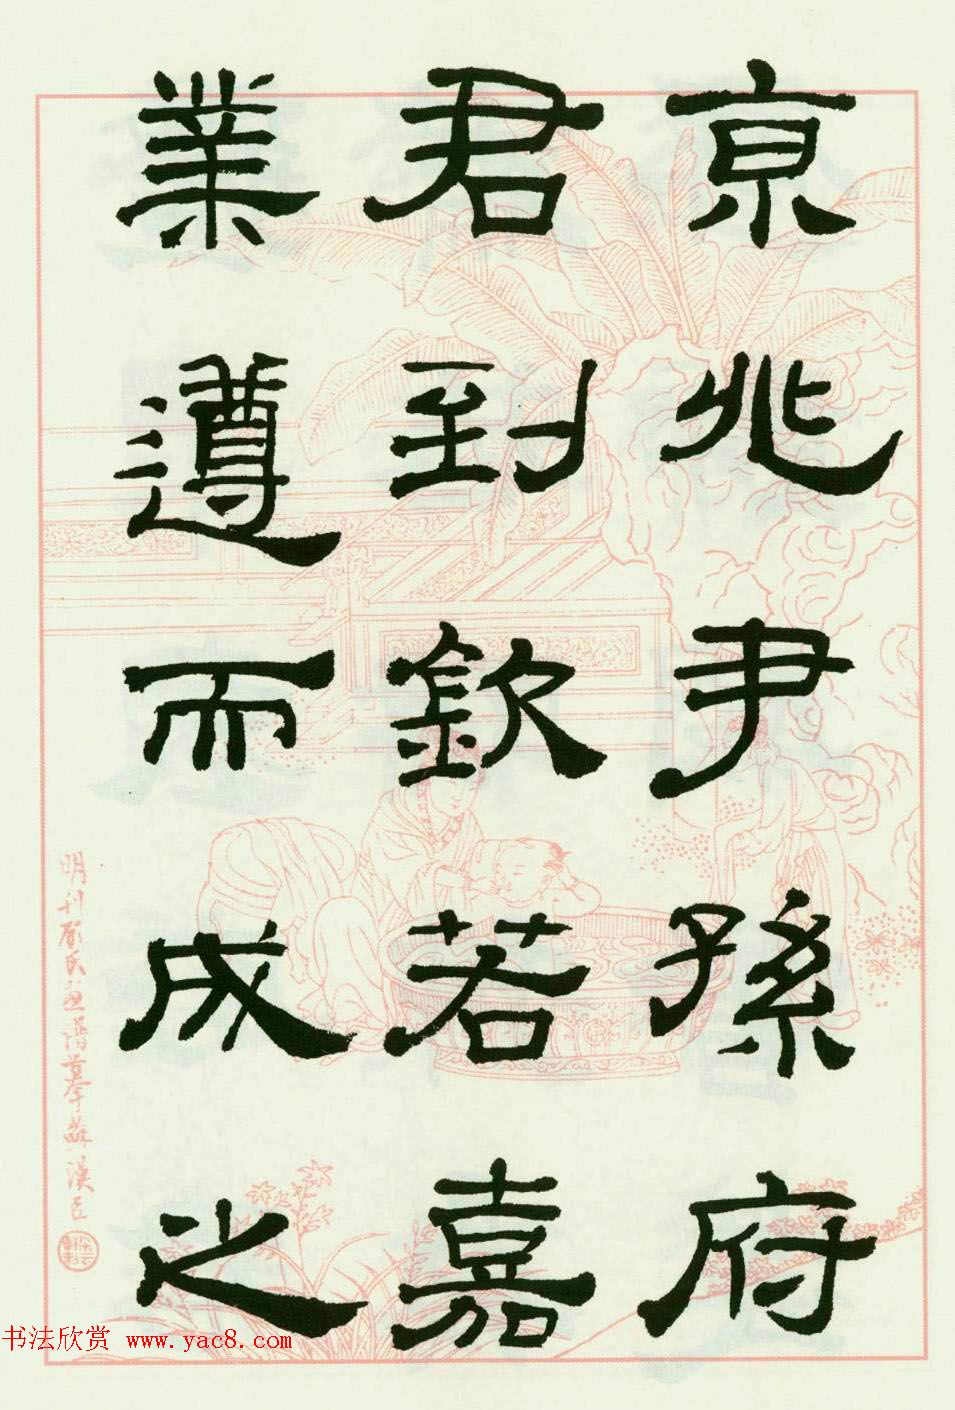 亰兆尹孫府
君到欽若嘉
業遵而成之
明刊顧氏畫譜摹蘇漢臣
书法欣赏 www.yac8.com